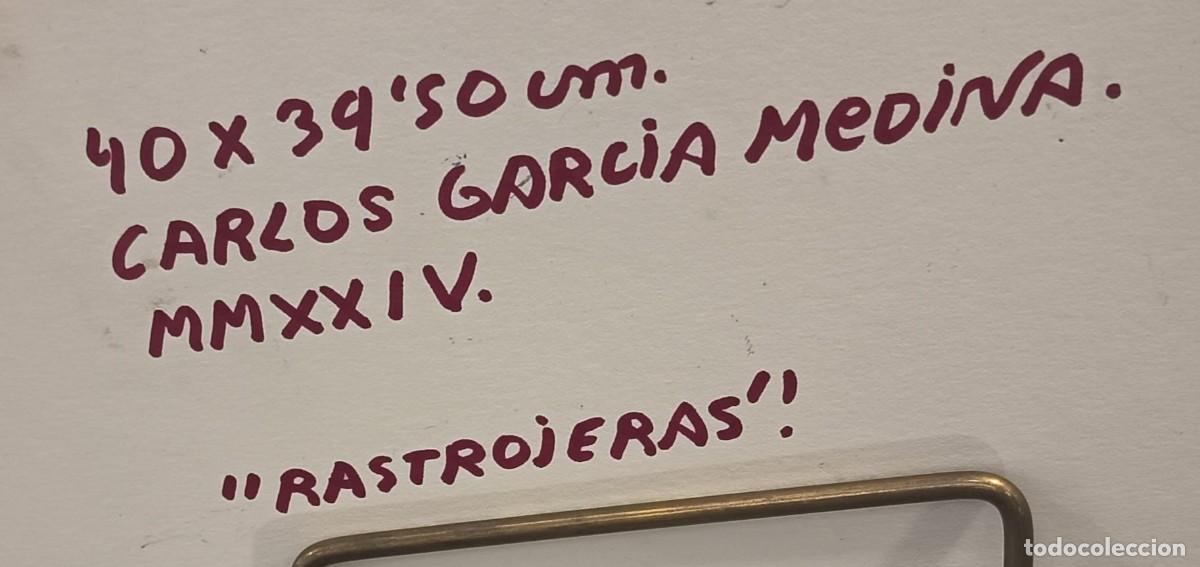 40 X 39'50 cm.
CARLOS GARCiA MeDiNA.
MMXXIV.
"RASTROjERAS".
todocoleccion